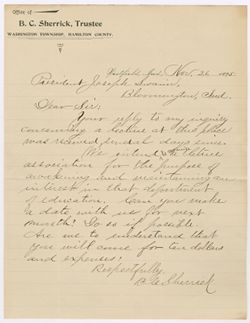 Office of
B. C. Sherrick, Trustee
WASHINGTON TOWNSHIP, HAMILTON COUNTY.
Westfield Ind. Nov. 26 1895.
President Joseph Swain,
Bloomington, Ind.
Dear Sir:
Your reply to my inquiry
concerning a lecture at this place
was received several days since.
We formed a
association for the purpose of
awakening and maintaining an
interest in that department
of education. Can you make
a date with us for next
month? Do so if possible
Are we to understand that
you will come for ten dollars
and expenses?
Respectfully,
B.C. Sherrick